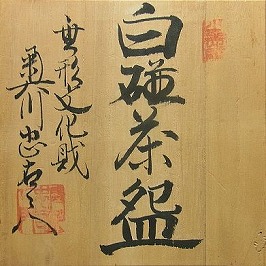 白磁茶盌
無形文化財
奥川忠右